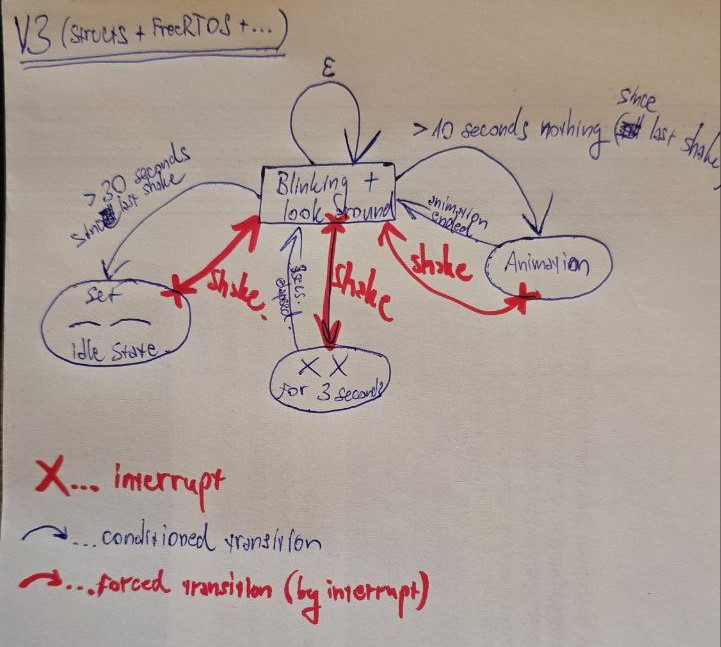 V3 (Structs + FreeRTOS + ...)
ε
>10 seconds nothing (since last shake)
>30 seconds
since last shake
Blinking +
look around
animation
ended
Animation
shake
shake
shake
3secs.
elapsed.
Set
idle state
X X
for 3 seconds
X... interrupt
...conditioned transition
...forced transition (by interrupt)